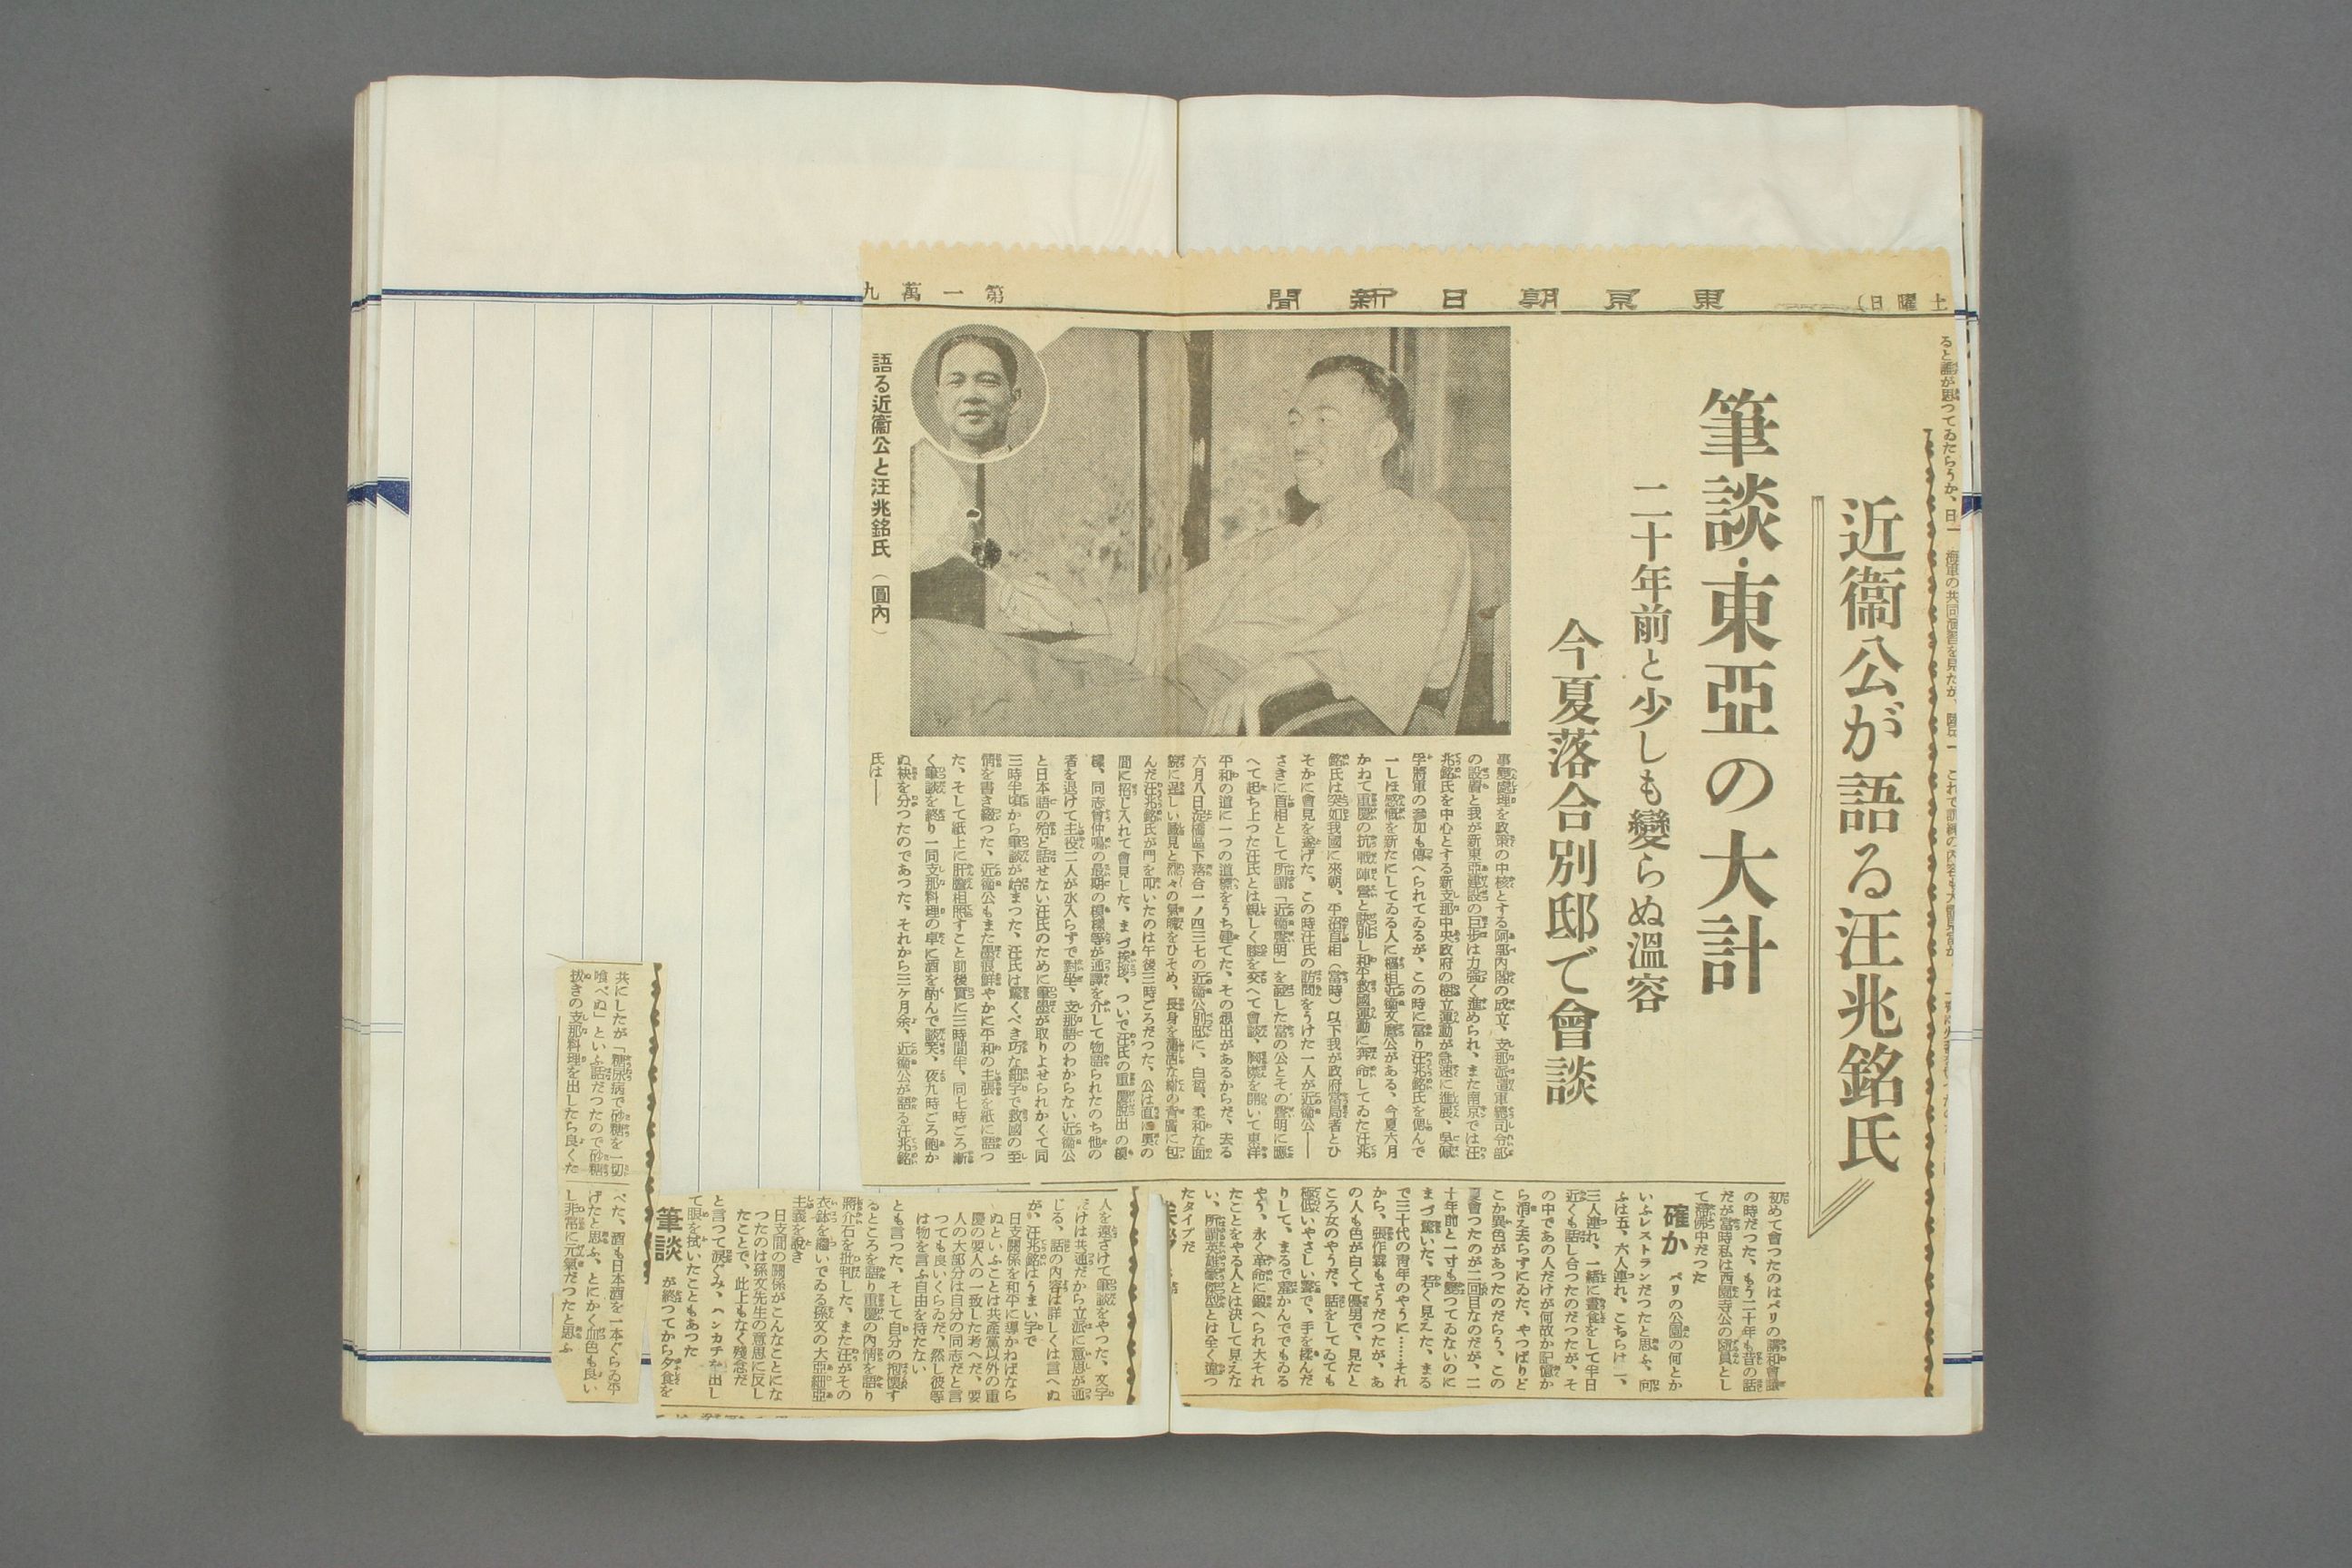 土曜日）
東京朝日新聞
第一萬九
近衞公が語る汪兆銘氏
筆談・東亞の大計
二十年前と少しも變らぬ溫容
今夏落合別邸で會談
語る近衞公と汪兆銘氏（圓內）
事變處理を政策の中核とする阿部內閣の成立、支那派遣軍總司令部
の設置と我が新東亞建設の巨步は力强く進められ、また南京では汪
兆銘氏を中心とする新支那中央政府の樹立運動が急速に進展、吳佩
孚將軍の參加も傳へられてゐるが、この時に當り汪兆銘氏を偲んで
一しほ感慨を新たにしてゐる人に樞相近衞文麿公がある、今夏六月
かねて重慶の抗戰陣營と訣別し和平救國運動に奔命してゐた汪兆
銘氏は突如我國に來朝、平沼首相（當時）以下我が政府當局者とひ
そかに會見を遂げた、この時汪氏の訪問をうけた一人が近衞公――
さきに首相として所謂「近衞聲明」を發した當の公とその聲明に應
へて起ち上つた汪氏とは親しく膝を交へて會談、胸襟を開いて東洋
平和の道に一つの道標をうち建てた、その想出があるからだ、去る
六月八日淀橋區下落合一ノ四三七の近衞公別邸に、白皙、柔和な面
貌に逞しい識見と烈々の氣魄をひそめ、長身を瀟洒な紺の背廣に包
んだ汪兆銘氏が門を叩いたのは午後三時ごろだつた、公は直に奧の
間に招じ入れて會見した、まづ挨拶、ついで汪氏の重慶脫出の模
樣、同志曾仲鳴の最期の模樣等が通譯を介して物語られたのち他の
者を退けて主役二人が水入らずで對坐、支那語のわからない近衞公
と日本語の殆ど話せない汪氏のために筆墨が取りよせられかくて同
三時半頃から筆談が始まつた、汪氏は驚くべき巧な細字で救國の至
情を書き綴つた、近衞公もまた墨痕鮮やかに平和の主張を紙に語つ
た、そして紙上に肝膽相照すこと前後實に三時間半、同七時ごろ漸
く筆談を終り一同支那料理の卓に酒を酌んで談笑、夜九時ごろ飽か
ぬ袂を分つたのであつた、それから三ヶ月余、近衞公が語る汪兆銘
氏は――
初めて會つたのはパリの講和會議
の時だつた、もう二十年も昔の話
だが當時私は西園寺公の隨員とし
て滯佛中だつた
確か　パリの公園の何とか
いふレストランだつたと思ふ、向
ふは五、六人連れ、こちらは二、
三人連れ、一緖に晝食をして半日
近くも話し合つたのだつたが、そ
の中であの人だけが何故か記憶か
ら消え去らずにゐた、やつぱりど
こか異色があつたのだらう、この
夏會つたのが二回目なのだが、二
十年前と一寸も變つてゐないのに
まづ驚いた、若く見えた、まる
で三十代の靑年のやうに……それ
から、張作霖もさうだつたが、あ
の人も色が白くて優男で、見たと
ころ女のやうだ、話をしてゐても
極低いやさしい聲で、手を揉んだ
りして、まるで當かんででもゐる
やう、永く革命に鍛へられ大それ
たことをやる人とは決して見えな
い、所謂英雄豪傑型とは全く違つ
たタイプだ
人を遠ざけて筆談をやつた、文字
だけは共通だから立派に意思が通
じる、話の內容は詳しくは言へぬ
が、汪兆銘はうまい字で
日支關係を和平に導かねばなら
ぬといふことは共產黨以外の重
慶の要人の一致した考へだ、要
人の大部分は自分の同志だと言
つても良いくらゐだ、然し彼等
は物を言ふ自由を持たない
とも言つた、そして自分の抱懷す
るところを語り重慶の內情を語り
蔣介石を批判した、また汪がその
衣鉢を繼いでゐる孫文の大亞細亞
主義を說き
日支間の關係がこんなことにな
つたのは孫文先生の意思に反し
たことで、此上もなく殘念だ
と言つて淚ぐみ、ハンカチを出し
て眼を拭いたこともあつた
筆談　が終つてから夕食を
共にしたが「糖尿病で砂糖を一切
喰べぬ」といふ話だつたので砂糖
拔きの支那料理を出したら良くた
べた、酒も日本酒を一本ぐらゐ平
げたと思ふ、とにかく血色も良い
し非常に元氣だつたと思ふ